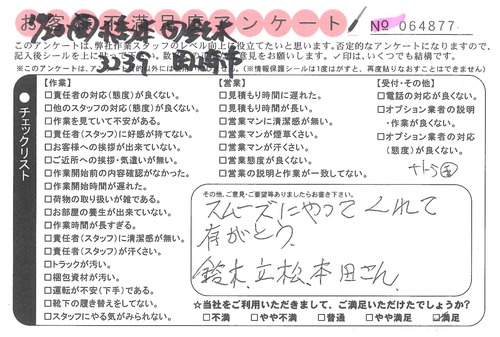 お客様不満足度アンケート
No 064877
このアンケートは、弊社作業スタッフのレベル向上に役立てたいと思います。否定的なアンケートになりますので、
記入後シールを上に貼って下さい。
意見をお願いします。✓印は、いくつでも結構です。
チェックリスト
【作業】
□責任者の対応(態度)が良くない。
□他のスタッフの対応(態度)が良くない。
□作業を見ていて不安がある。
□責任者(スタッフ)に好感が持てない。
□お客様への挨拶が出来ていない。
□ご近所への挨拶・気遣いが無い。
□作業開始前の内容確認がなかった。
□作業開始時間が遅れた。
□荷物の取り扱いが雑である。
□お部屋の養生が出来ていない。
□作業時間が長すぎる。
□責任者(スタッフ)に清潔感が無い。
□責任者(スタッフ)が汗くさい。
□トラックが汚い。
□梱包資材が汚い。
□運転が不安(下手)である。
□靴下の履き替えをしてない。
□スタッフにやる気がみられない。
【営業】
□見積もり時間に遅れた。
□見積もり時間が長い。
□営業マンに清潔感が無い。
□営業マンが煙草くさい。
□営業マンが汗くさい。
□営業態度が良くない。
□営業の説明と作業が一致してない。
【受付・その他】
□電話の対応が良くない。
□オプション業者の説明
・作業が良くない。
□オプション業者の対応
(態度)が良くない。
その他、ご意見・ご要望等ありましたらお書き下さい。
スムーズにやってくれて
有がとう。
鈴木、立松、本田さん。
☆当社をご利用いただきまして、ご満足いただけてでしょうか?
□不満 □やや不満 □普通 □やや満足 ☑満足